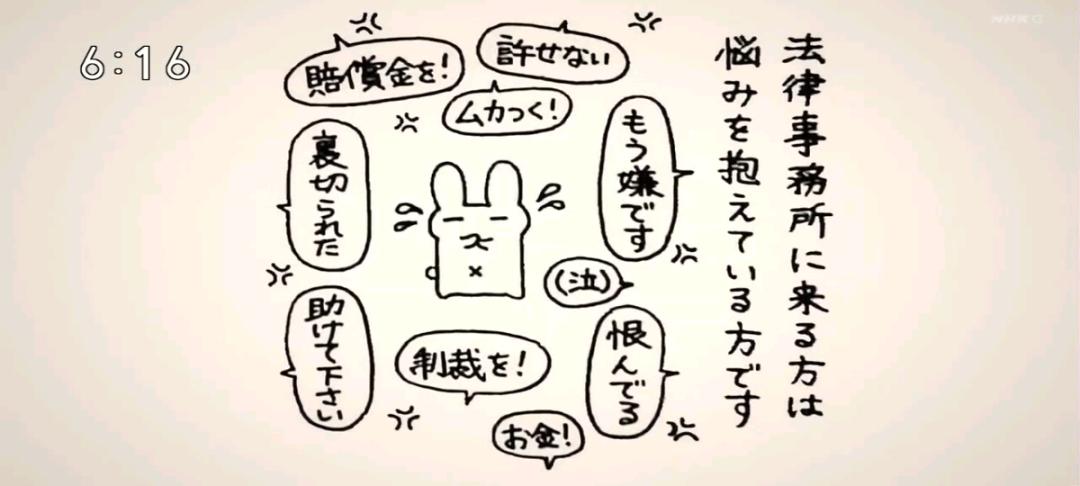 6:16
NHK G
法律事務所に来る方は
悩みを抱えている方です
許せない
賠償金を!
ムカつく!
もう嫌です
裏切られた
(泣)
恨んでる
制裁を!
助けて下さい
お金!